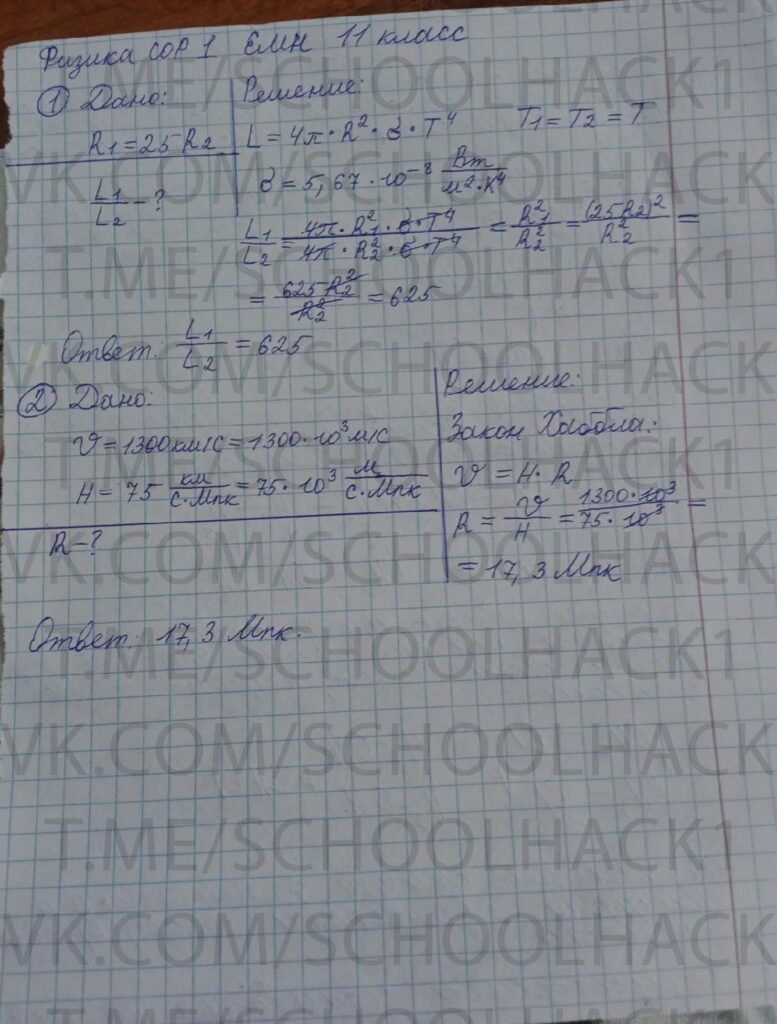 Физика СОР 1 ЕМН 11 класс
① Дано:
R₁ = 25 R₂
L₁/L₂ - ?
Решение:
L = 4π · R² · σ · T⁴ T₁ = T₂ = T
σ = 5,67 · 10⁻⁸ Вт/м²·К⁴
L₁/L₂ = 4π · R₁² · σ · T⁴ / 4π · R₂² · σ · T⁴ = R₁²/R₂² = (25R₂)²/R₂² =
= 625 R₂²/R₂² = 625
Ответ. L₁/L₂ = 625
② Дано:
υ = 1300 км/с = 1300 · 10³ м/с
H = 75 км/с·Мпк = 75 · 10³ м/с·Мпк
R - ?
Решение:
Закон Хаббла:
υ = H · R
R = υ/H = 1300 · 10³ / 75 · 10³ =
= 17,3 Мпк
Ответ: 17,3 Мпк.
T.ME/SCHOOLHACK1
VK.COM/SCHOOLHACK1
T.ME/SCHOOLHACK1
VK.COM/SCHOOLHACK
T.ME/SCHOOLHACK1
VK.COM/SCHOOLHACK1
T.ME/SCHOOLHACK1
VK.COM/SCHOOLHACK
T.ME/SCHOOLHACK1
VK.COM/SCHOOLHACK